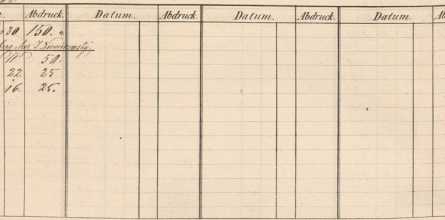 Abdruck. Datum. Abdruck. Datum. Abdruck. Datum.
30 150. "
50.
22 25
16. 25.